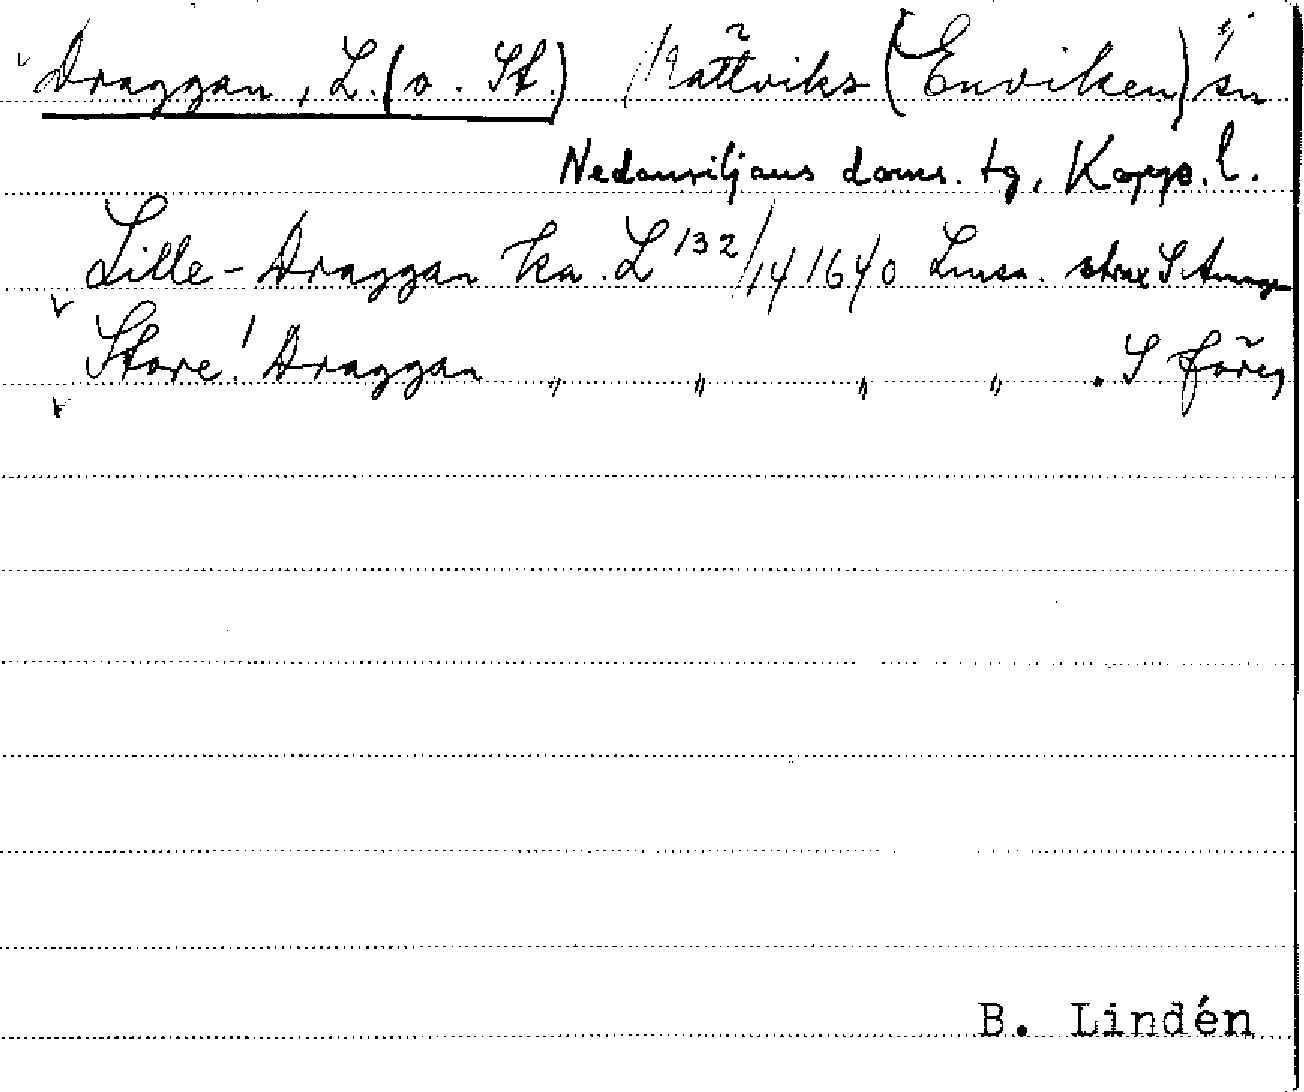 Draggan, L. (o. St.) Rättviks (Enviken) sn
Nedansiljans doms. tg, Kopps. l.
Lille-Draggan Ka. L 132/14 1640 Lmsa. strax S
Store! Draggan " " " " . S föreg
B. Lindén